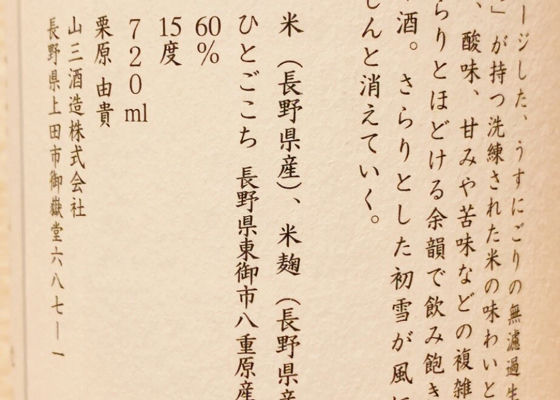 ージした、うすにごりの無濾過生
」が持つ洗練された米の味わいと
、酸味、甘みや苦味などの複雑
らりとほどける余韻で飲み飽き
酒。さらりとした初雪が風に
しんと消えていく。
米（長野県産）、米麹（長野県産
ひとごこち 長野県東御市八重原産
60%
15度
720ml
栗原 由貴
山三酒造株式会社
長野県上田市御嶽堂六八七―一